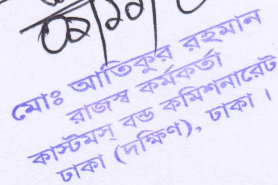 মোঃ আতিকুর রহমান
রাজস্ব কর্মকর্তা
কাস্টমস্ বন্ড কমিশনারেট
ঢাকা (দক্ষিণ), ঢাকা ।